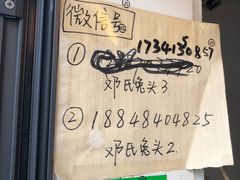 微信号
① 17341350857
20
邓氏兔头3
② 18848404825
邓氏兔头2